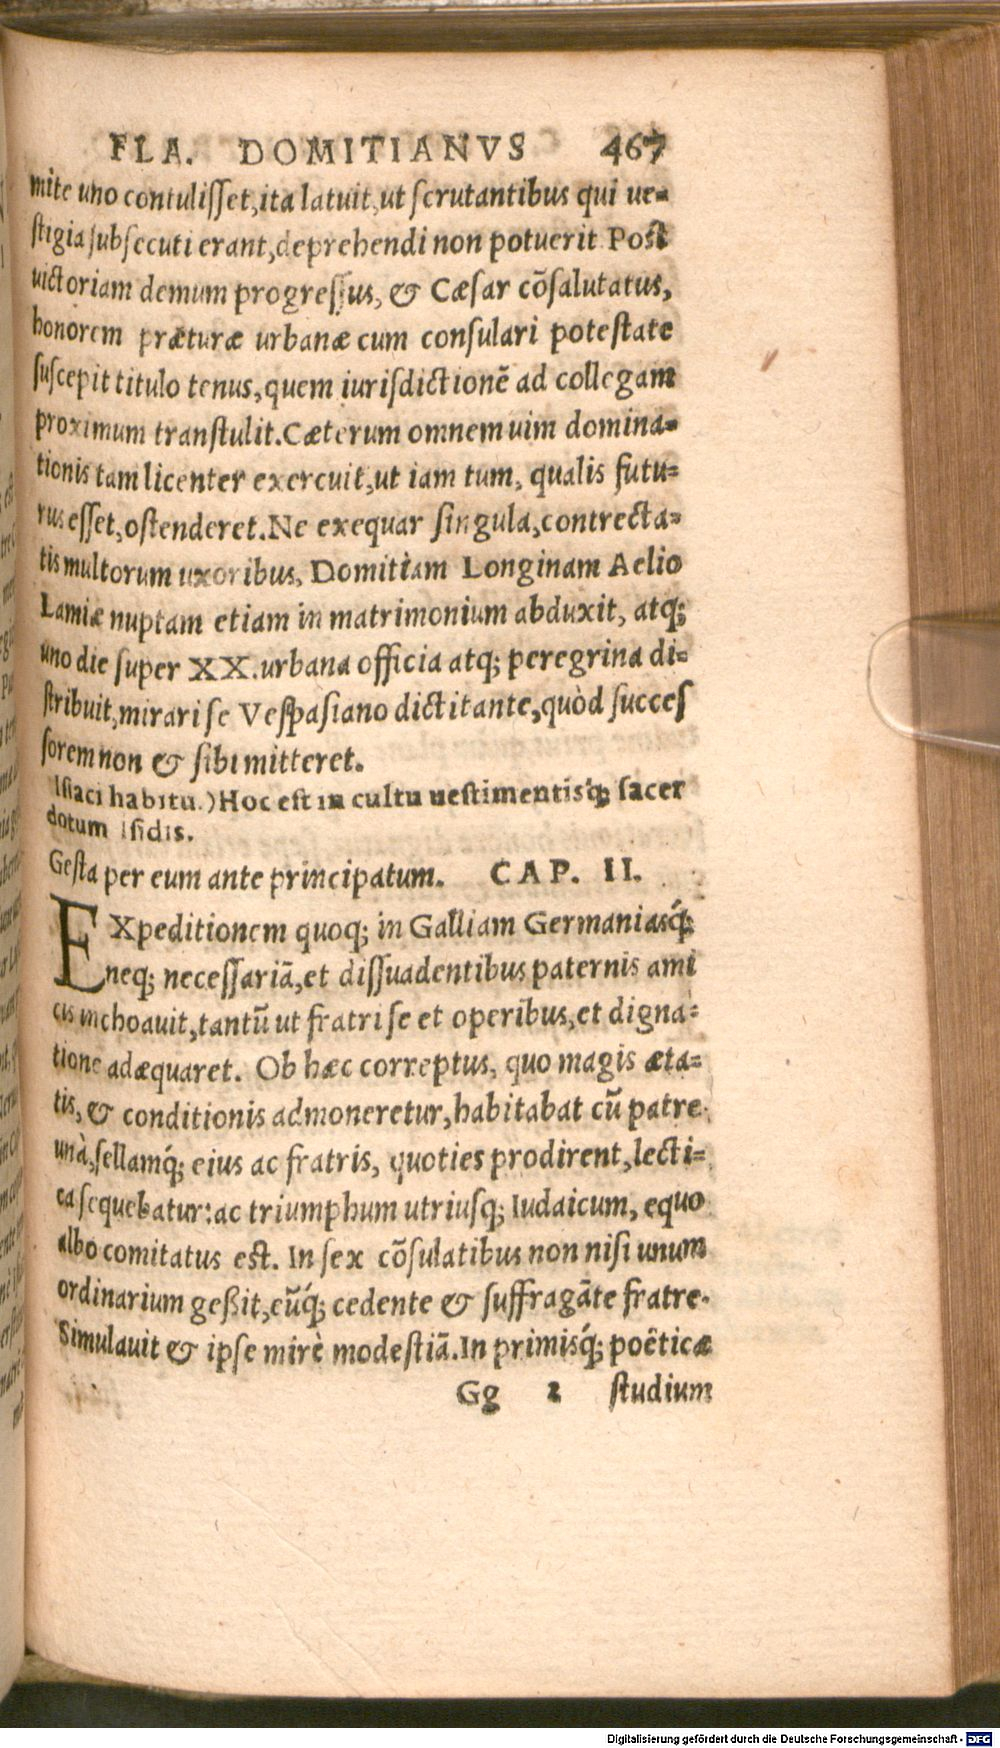 FLA. DOMITIANVS 467
mite uno contulisſet, ita latuit, ut ſcrutantibus qui ue-
ſtigia ſubſecuti erant, deprehendi non potuerit. Poſt
uictoriam demum progreſſus, & Cæſar cõſalutatus,
honorem præturæ urbanæ cum conſulari poteſtate
ſuſcepit titulo tenus, quem iuriſdictionẽ ad collegam
proximum tranſtulit. Cæterum omnem uim domina-
tionis tam licenter exercuit, ut iam tum, qualis futu-
rus eſſet, oſtenderet. Ne exequar ſingula, contrecta-
tis multorum uxoribus, Domitiam Longinam Aelio
Lamiæ nuptam etiam in matrimonium abduxit, atq;
uno die ſuper XX. urbana officia atq; peregrina di-
ſtribuit, mirari ſe Veſpaſiano dictitante, quòd ſucceſ
ſorem non & ſibi mitteret.
Iſiaci habitu.) Hoc eſt in cultu ueſtimentisq́; ſacer
dotum Iſidis.
Geſta per eum ante principatum. CAP. II.
EXpeditionem quoq; in Galliam Germaniasq́;
neq; neceſſariã, et diſſuadentibus paternis ami
cis inchoauit, tantũ ut fratri ſe et operibus, et digna-
tione adæquaret. Ob hæc correptus, quo magis æta-
tis, & conditionis admoneretur, habitabat cũ patre
unà, ſellamq́; eius ac fratris, quoties prodirent, lecti-
ca ſequebatur: ac triumphum utriuſq; Iudaicum, equo
albo comitatus eſt. In ſex cõſulatibus non niſi unum
ordinarium geßit, eũq́; cedente & ſuffragãte fratre.
Simulauit & ipſe mirè modeſtiã. In primisq́; poêticæ
Gg 2 ſtudium
Digitalisierung gefördert durch die Deutsche Forschungsgemeinschaft - DFG